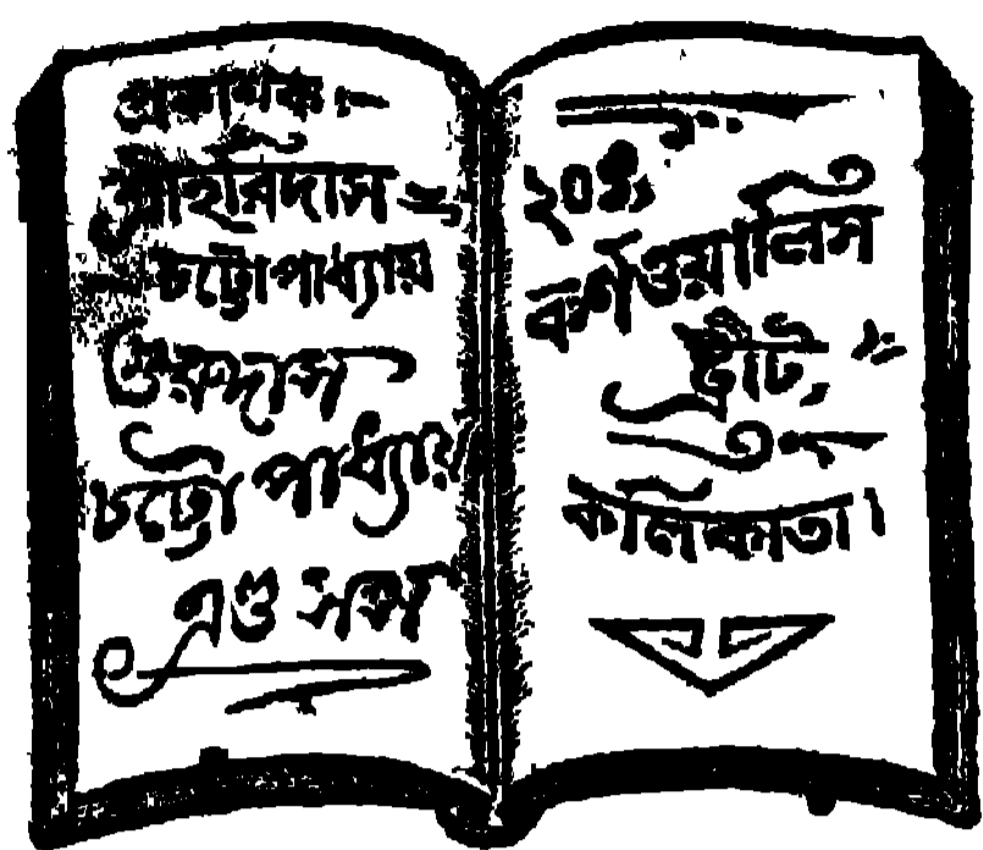 প্রকাশক।—
শ্রীহরিদাস
চট্টোপাধ্যায়
গুরুদাস
চট্টোপাধ্যায়
এণ্ড সন্স
কর্ণওয়ালিস
ষ্ট্রীট,
কলিকাতা।